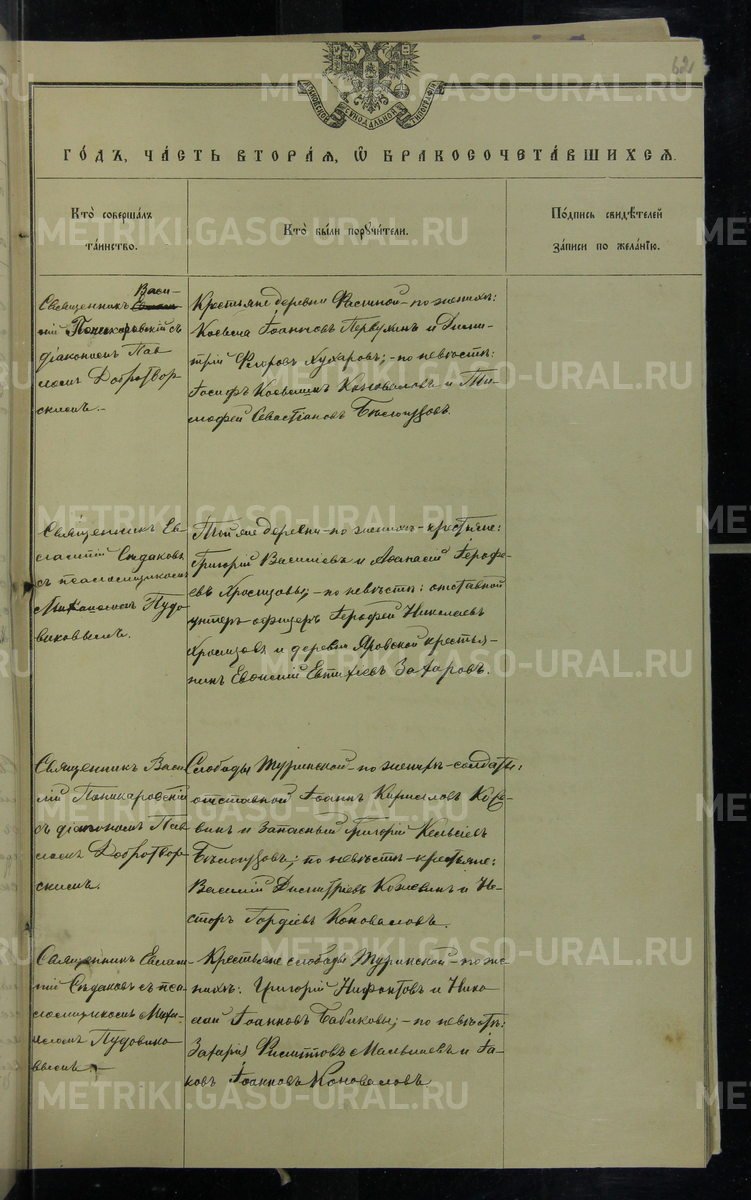 62
МОСКОВСКОЙ СѴНОДАЛЬНОЙ ТИПОГРАФІИ
ГОДЪ, ЧАСТЬ ВТОРАЯ, Ѡ БРАКОСОЧЕТАВШИХСЯ.
Кто совершалъ
таинство.
Кто были поручители.
Подпись свидѣтелей
записи по желанію.
Васи-
Священникъ
лій Поникаровскій съ
діакономъ Пав
ломъ Добротвор
скимъ.-
Крестьяне деревни Фасиной-по женихѣ:
Іоанновъ Первухинъ и Дими-
трій Ѳедоровъ Кухаровъ;-по невѣстѣ:
Іосифъ Коноваловъ и Ти-
моѳей Севастьяновъ Бѣлоусовъ.
Священникъ Ев
лампій Сѣдаковъ
съ псаломщикомъ
Михаиломъ Пудо
виковымъ.
Той же деревни-по женихѣ-крестьяне:
Григорій Васильевъ и Аѳанасій Іероѳе-
евъ Хромцовы;-по невѣстѣ: отставной
унтеръ-офицеръ Іероѳей Николаевъ
Хромцовъ и деревни Яровской крестья-
нинъ Евѳимій Евтихіевъ Захаровъ.
Священникъ Васи
лій Поникаровскій
съ діакономъ Пав
ломъ Добротвор
скимъ.
Слободы Туринской-по женихѣ-солдаты:
отставной Іоаннъ Кирилловъ Коже-
винъ и запасный Григорій Кельсіевъ
Бѣлоусовъ; по невѣстѣ-крестьяне:
Василій Димитріевъ Кожевинъ и Не-
сторъ Гордіевъ Коноваловъ.
Священникъ Евлам-
пій Сѣдаковъ съ пса
ломщикомъ Миха-
иломъ Пудовико
вымъ-
Крестьяне слободы Туринской-по же-
нихѣ: Григорій Нифонтовъ и Нико
лай Іоанновъ Бабиковы;-по невѣстѣ:
Захарія Филипповъ Малышевъ и Іа-
ковъ Іоанновъ Коноваловъ
METRIKI.GASO-URAL.RU